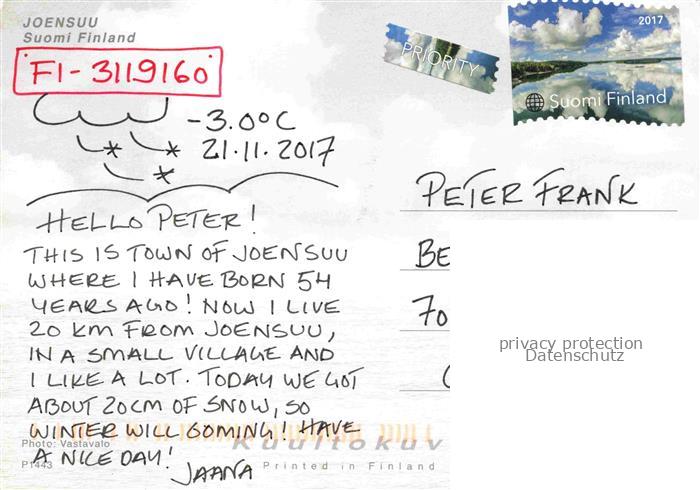 JOENSUU
Suomi Finland
FI-3119160
PRIORITY
2017
Suomi Finland
-3.0°C
21.11.2017
PETER FRANK
BE
70
HELLO PETER!
THIS IS TOWN OF JOENSUU
WHERE I HAVE BORN 54
YEARS AGO! NOW I LIVE
20 KM FROM JOENSUU,
IN A SMALL VILLAGE AND
I LIKE A LOT. TODAY WE GOT
ABOUT 20CM OF SNOW, SO
WINTER WILL COMING! HAVE
A NICE DAY!
JAANA
privacy protection
Datenschutz
Photo: Vastavalo
P1443
Kuultokuv
Printed in Finland